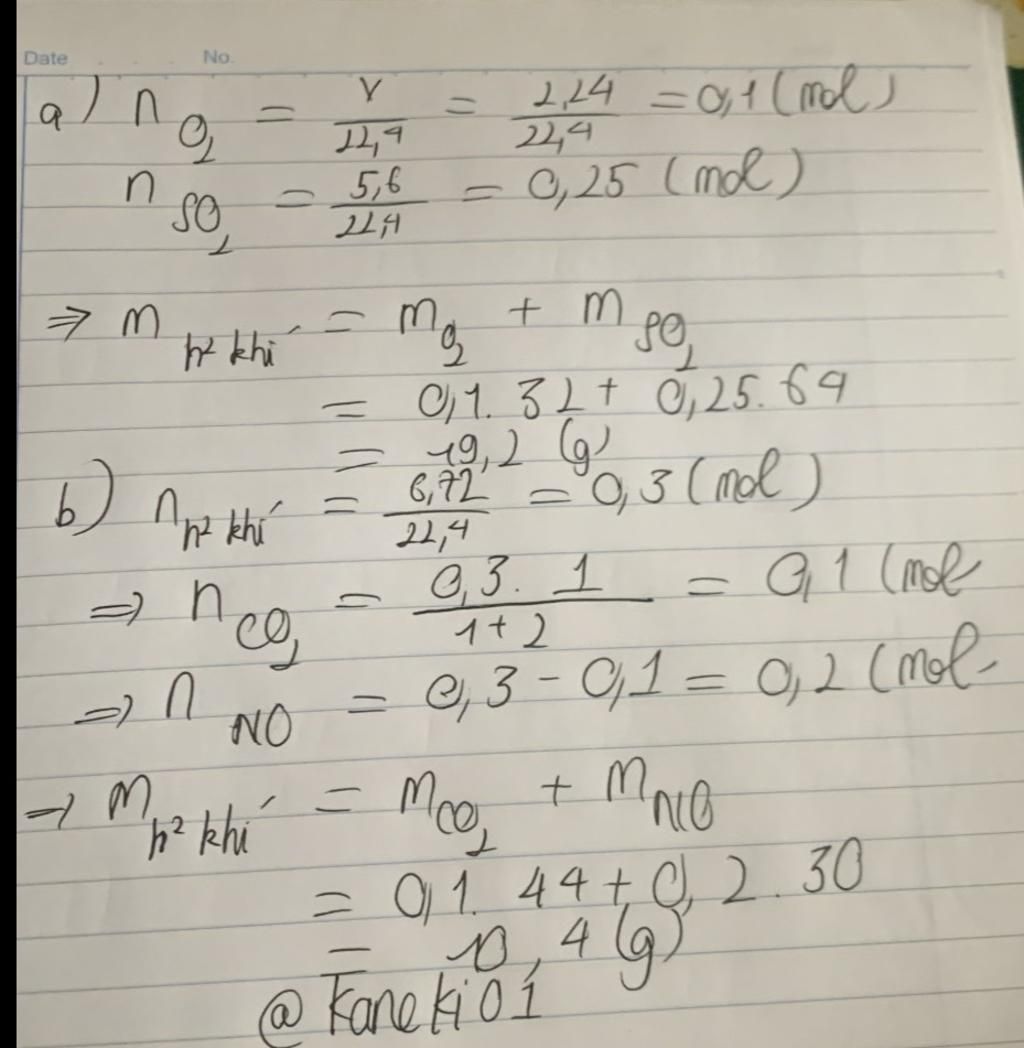 Date No.
a) n O₂ = V/22,4 = 2,24/22,4 = 0,1 (mol)
n SO₂ = 5,6/22,4 = 0,25 (mol)
⇒ m h² khí = m O₂ + m SO₂
= 0,1. 32 + 0,25. 64
= 19,2 (g)
b) n h² khí = 6,72/22,4 = 0,3 (mol)
⇒ n CO₂ = 0,3. 1/1+2 = 0,1 (mol
⇒ n NO = 0,3 - 0,1 = 0,2 (mol
→ m h² khí = m CO₂ + m NO
= 0,1. 44 + 0,2. 30
= 10,4 (g)
@Kaneki01